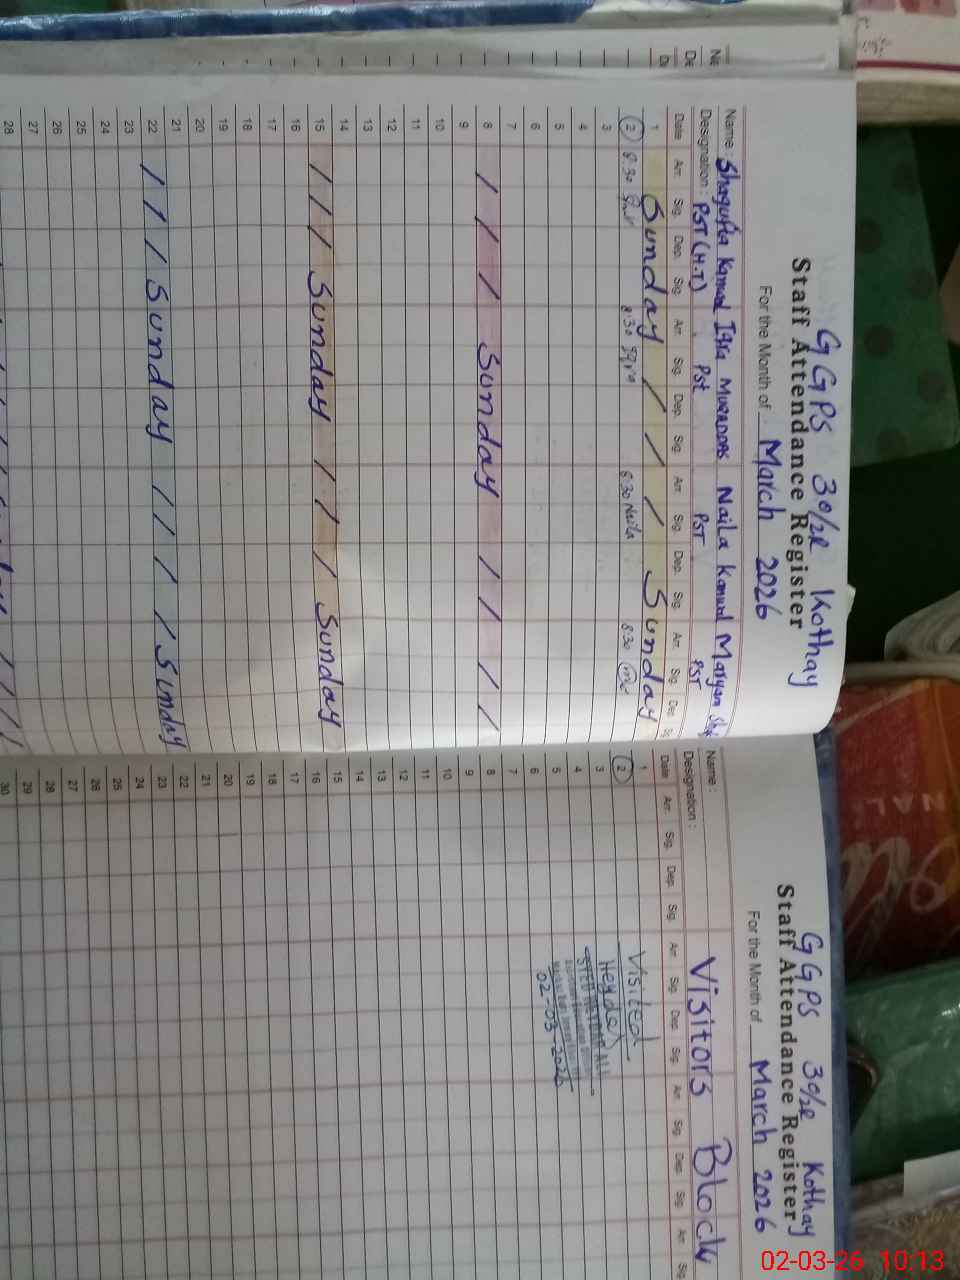 GGPS 30/2R Kothay
Staff Attendance Register
For the Month of March 2026
Name: Shagufta Kanwal Iqra Muraddas Naila Kanwal Maryam
Designation: PST (H.T) Pst PST PST
Date Arr. Sig. Dep. Sig. Arr. Sig. Dep. Sig. Arr. Sig. Dep. Sig. Arr. Sig. Dep. Sig.
1 Sunday / / / Sunday
2 8:30 8:30 Iqra 8:30 Naila 8:30
3
4
5
6
7
8 / / / Sunday / / / /
9
10
11
12
13
14
15 / / / Sunday / / / Sunday
16
17
18
19
20
21
22 / / / Sunday / / / / Sunday
23
24
25
26
27
28
GGPS 30/2R Kothay
Staff Attendance Register
For the Month of March 2026
Name: Visitors Block
Designation:
Date Arr. Sig. Dep. Sig. Arr. Sig. Dep. Sig. Arr. Sig. Dep. Sig. Arr. Sig.
1
2 Visited
3
4
5
6 02-03-2026
7
8
9
10
11
12
13
14
15
16
17
18
19
20
21
22
23
24
25
26
27
28
29
30
02-03-26 10:13